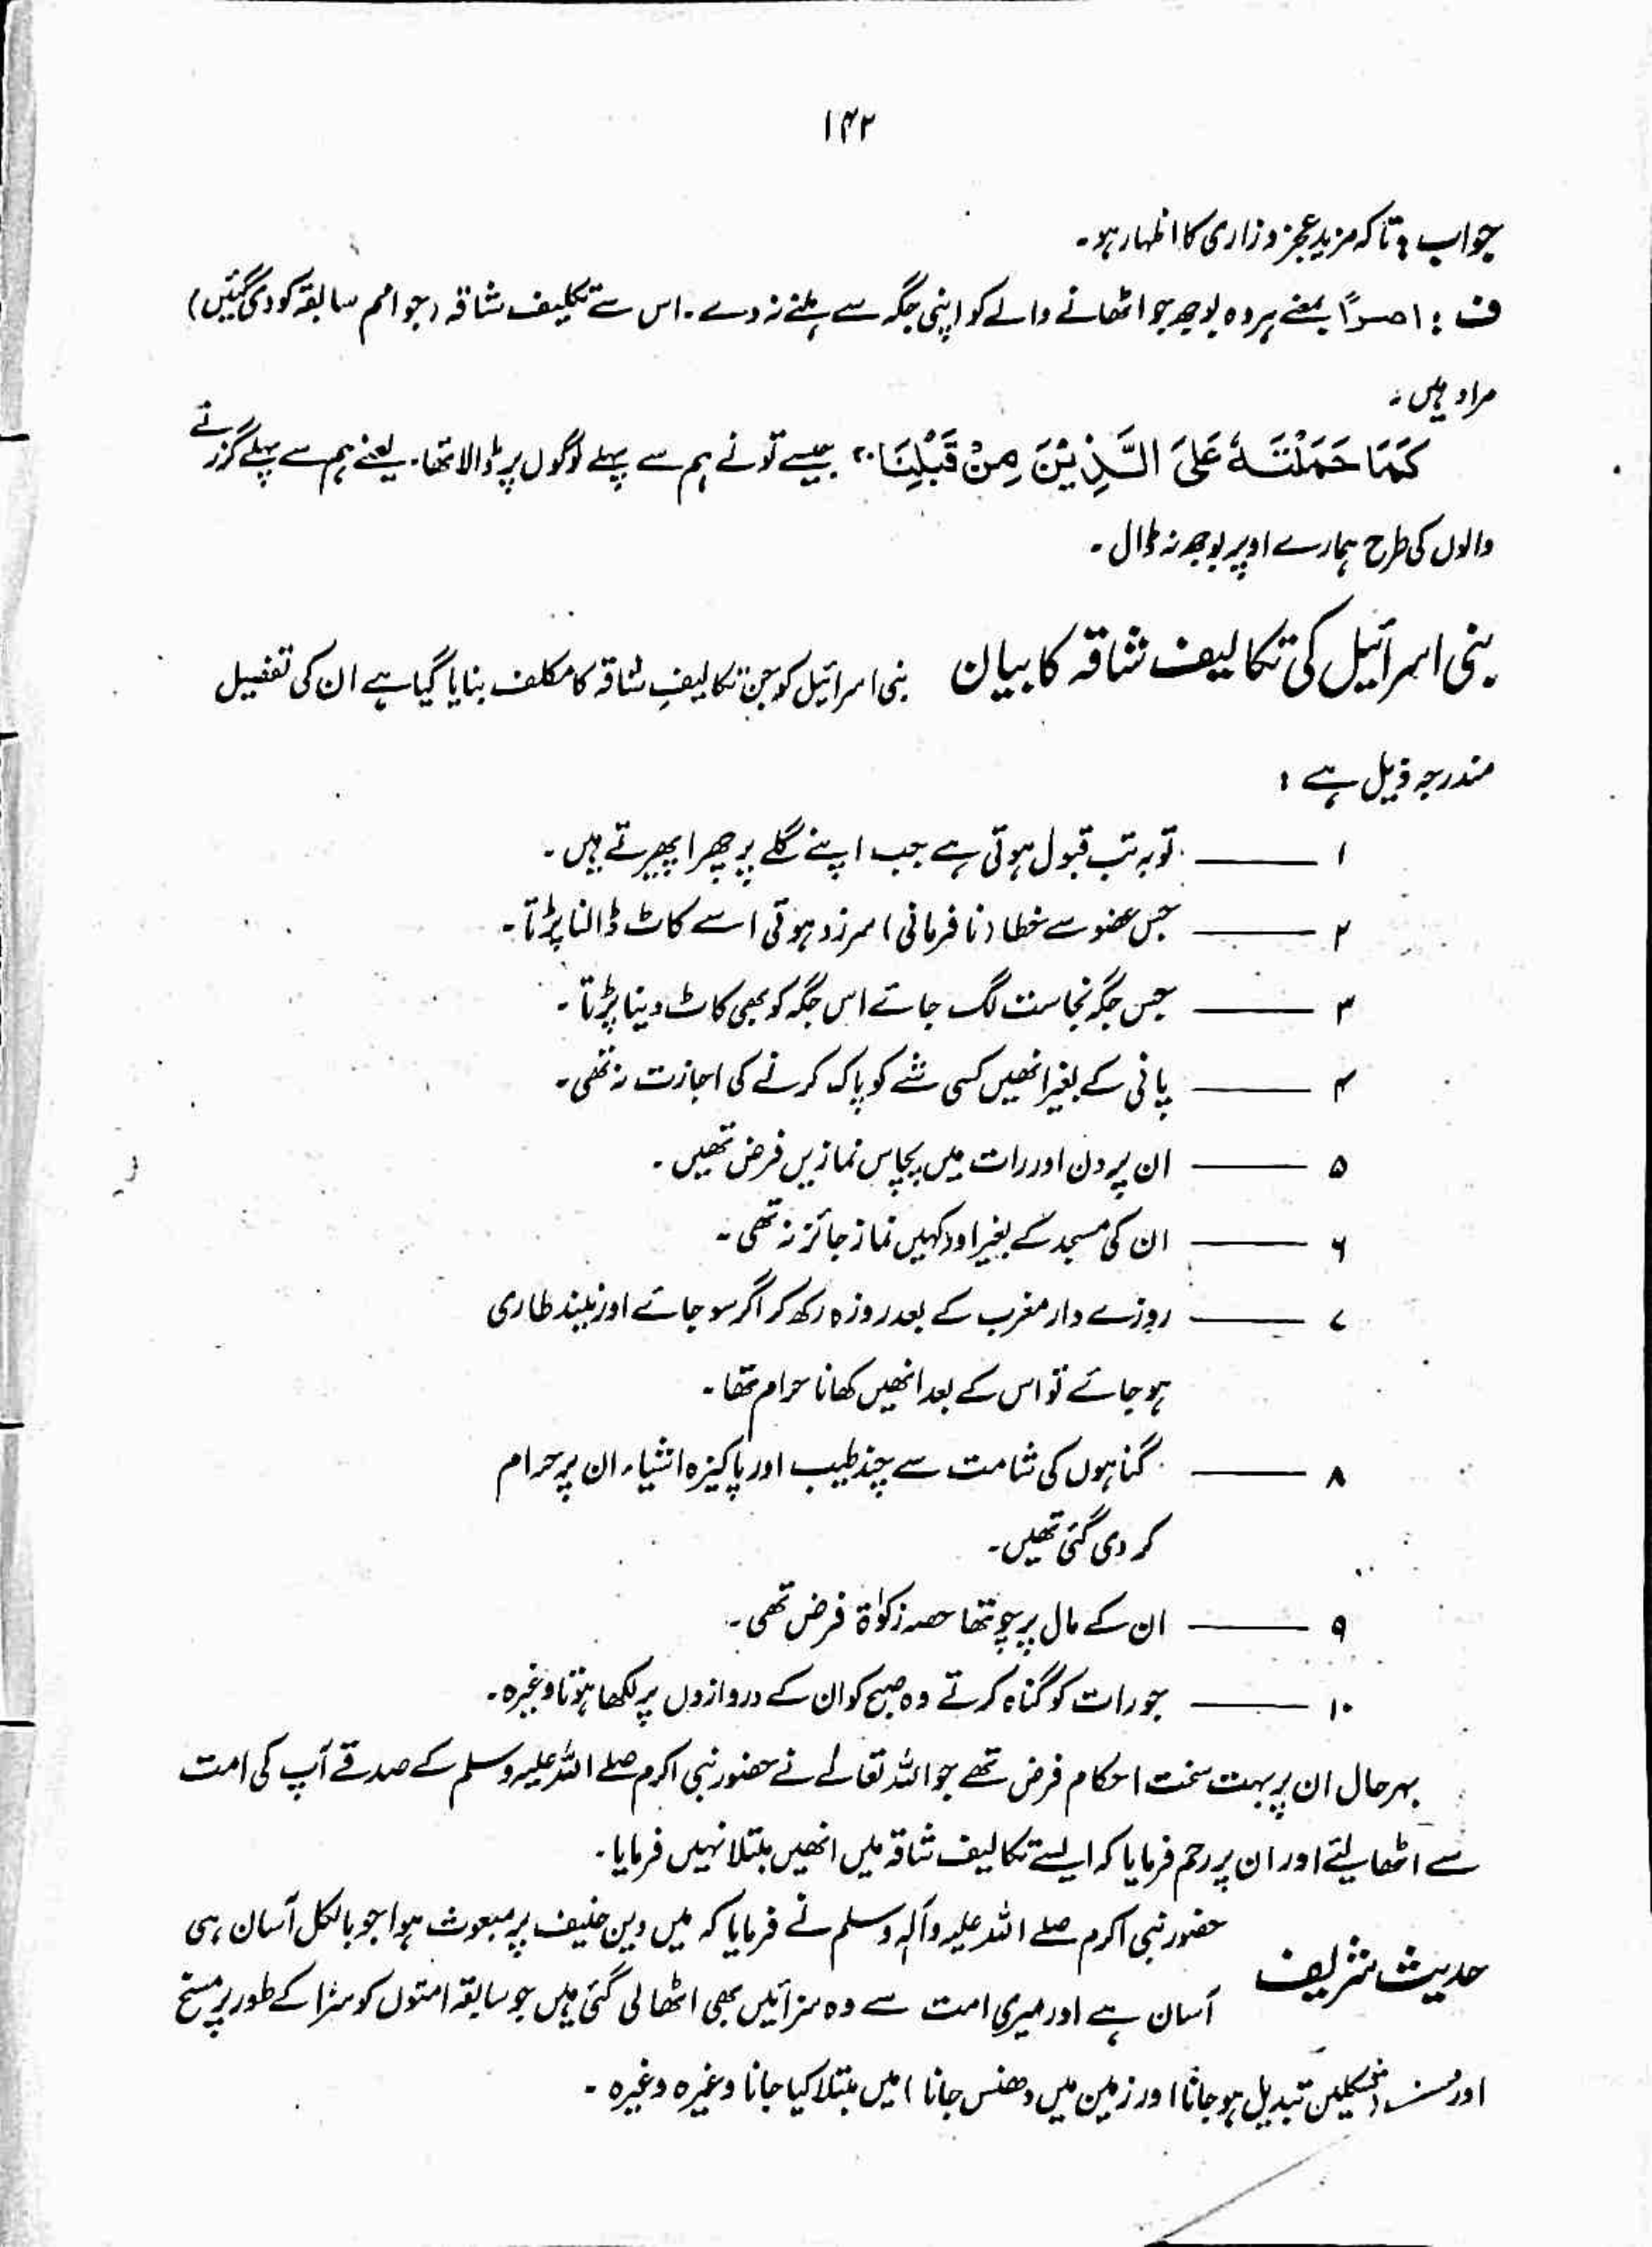 ۱۴۲
جواب : تاکہ مزید عجز و زاری کا اظہار ہو۔
ف : اصرًا بمعنے ہر وہ بوجھ جو اٹھانے والے کو اپنی جگہ سے ہلنے نہ دے۔ اس سے تکلیف شاقہ (جو امم سابقہ کو دی گئیں)
مراد ہیں۔
كَمَا حَمَلْتَهٗ عَلَى الَّذِيْنَ مِنْ قَبْلِنَا۔ جیسے تو نے ہم سے پہلے لوگوں پر ڈالا تھا۔ یعنے ہم سے پہلے گزرنے
والوں کی طرح ہمارے اوپر بوجھ نہ ڈال۔
بنی اسرائیل کی تکالیف شاقہ کا بیان بنی اسرائیل کو جن تکالیفِ شاقہ کا مکلف بنایا گیا ہے ان کی تفصیل
مندرجہ ذیل ہے :
۱ ——— توبہ تب قبول ہوتی ہے جب اپنے گلے پر چھرا پھیرتے ہیں۔
۲ ——— جس عضو سے خطا (نافرمانی) سرزد ہوتی اسے کاٹ ڈالنا پڑتا۔
۳ ——— جس جگہ نجاست لگ جائے اس جگہ کو بھی کاٹ دینا پڑتا۔
۴ ——— پانی کے بغیر انھیں کسی شے کو پاک کرنے کی اجازت نہ تھی۔
۵ ——— ان پر دن اور رات میں پچاس نمازیں فرض تھیں۔
۶ ——— ان کی مسجد کے بغیر اور کہیں نماز جائز نہ تھی۔
۷ ——— روزے دار مغرب کے بعد روزہ رکھ کر اگر سو جائے اور نیند طاری
ہو جائے تو اس کے بعد انھیں کھانا حرام تھا۔
۸ ——— گناہوں کی شامت سے چند طیب اور پاکیزہ اشیاء ان پر حرام
کر دی گئی تھیں۔
۹ ——— ان کے مال پر چوتھا حصہ زکوٰۃ فرض تھی۔
۱۰ ——— جو رات کو گناہ کرتے وہ صبح کو ان کے دروازوں پر لکھا ہوتا وغیرہ۔
بہرحال ان پر بہت سخت احکام فرض تھے جو اللہ تعالےٰ نے حضور نبی اکرم صلے اللہ علیہ وسلم کے صدقے آپ کی امت
سے اٹھا لیئے اور ان پر رحم فرمایا کہ ایسے تکالیف شاقہ میں انھیں مبتلا نہیں فرمایا۔
حدیث شریف حضور نبی اکرم صلے اللہ علیہ وآلہ وسلم نے فرمایا کہ میں دین حنیف پر مبعوث ہوا جو بالکل آسان ہی
آسان ہے اور میری امت سے وہ سزائیں بھی اٹھا لی گئی ہیں جو سابقہ امتوں کو سزا کے طور پر مسخ
اور (شکلیں تبدیل ہو جانا اور زمین میں دھنس جانا) میں مبتلا کیا جانا وغیرہ وغیرہ۔